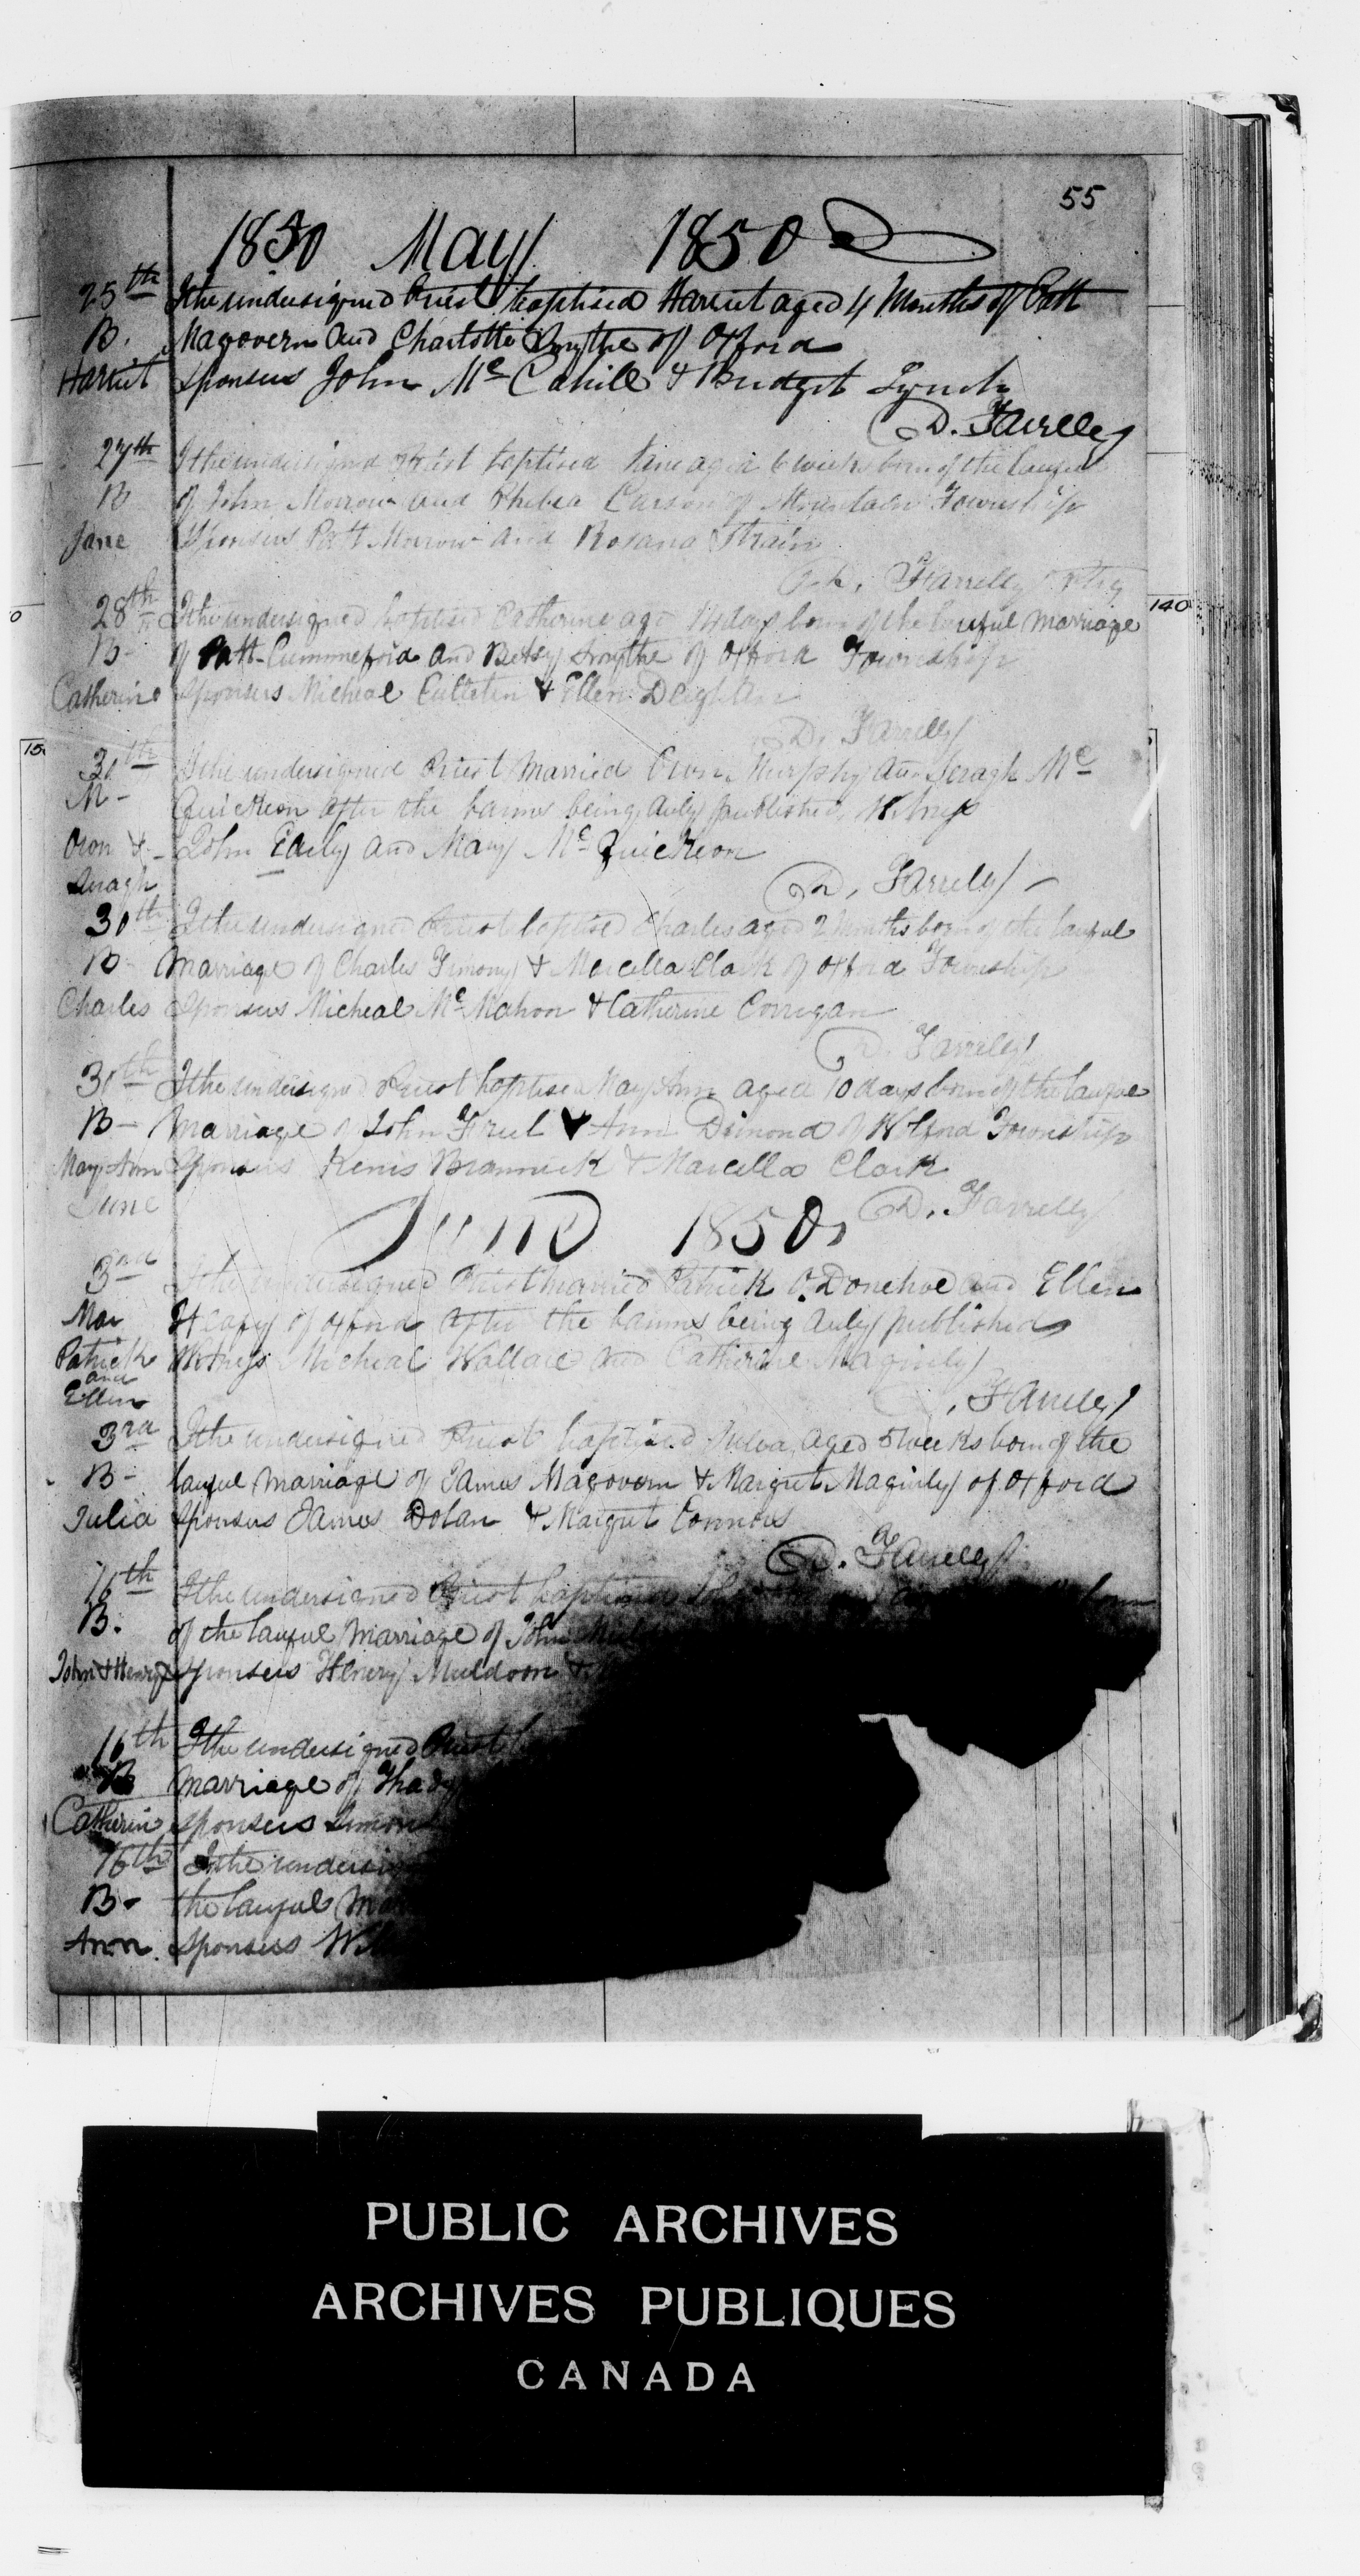 55
1850 May 1850
25th I the undersigned Priest baptised Harriet aged 4 Months of Patt
B. Magovern and Charlotte Smythe of Oxford
Harriet Sponsers John Mc Cahill & Bridget Lynch
D. Farrelly
27th I the undersigned Priest baptised Jane aged 6 weeks born of the lawful
B of John Morrow and Phebea Carson of Mountain Township
Jane Sponsers Patt Morrow and Rosana Strain
Farrelly
28th I the undersigned baptised Catherine age 14 days born of the lawful Marriage
B- of Patt Cummeford and Betsy Smythe of Oxford Township
Catherine Sponsers Micheal & Ellen
D. Farrelly
30th I the undersigned Priest Married Owen Murphy and Seragh Mc
M- Quickeon after the banns being duly published Witness
Owen & John Early and Mary Mc Quickeon
Seragh D. Farrely
30th I the undersigned Priest baptised Charles aged 2 Months born of the lawful
B- Marriage of Charles Timony & Marcella Clark of Oxford Township
Charles Sponsers Micheal Mc Mahon & Catherine Corrigan
D. Farrelly
30th I the undersigned Priest baptised Mary Ann aged 10 days born of the lawful
B- Marriage of John Freel & Ann Dimond of Wolford Township
Mary Ann Sponsers Kenis Brannick & Marcella Clark
June D. Farrelly
June 1850
3rd I the undersigned Priest married Patrick O.Donehoe and Ellen
Mar Heafy of Oxford after the banns being duly published
Patrick Witness Micheal Wallace and Catherine Maginly
and
Ellen Farrelly
3rd I the undersigned Priest baptised Julia aged 5 weeks born of the
B- lawful Marriage of James Magovern & Margret Maginly of Oxford
Julia Sponsers James Dolan & Margret Connors
D. Farrelly
16th I the undersigned Priest baptised John born
B. of the lawful Marriage of John
John & Henry Sponsers Henry Muldoon &
16th I the undersigned Priest
B Marriage of Thady
Catherin Sponsers Simon
16th I the
B- the lawful
Ann Sponsers
140
15
PUBLIC ARCHIVES
ARCHIVES PUBLIQUES
CANADA